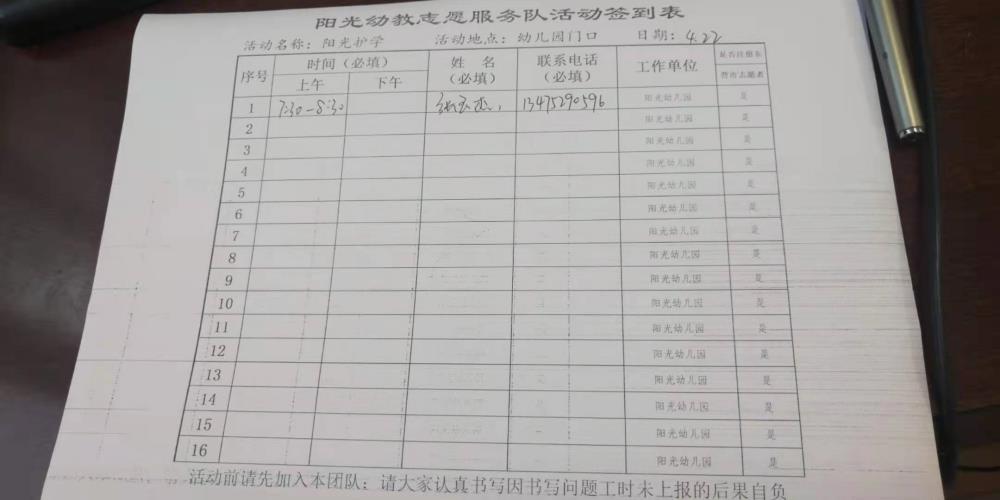 阳光幼教志愿服务队活动签到表
活动名称：阳光护学 活动地点：幼儿园门口 日期：4.22
序号 时间（必填） 姓 名（必填） 联系电话（必填） 工作单位 是否注册东营市志愿者
上午 下午
1 7:30-8:30 13475290596 阳光幼儿园 是
2 阳光幼儿园 是
3 阳光幼儿园 是
4 阳光幼儿园 是
5 阳光幼儿园 是
6 阳光幼儿园 是
7 阳光幼儿园 是
8 阳光幼儿园 是
9 阳光幼儿园 是
10 阳光幼儿园 是
11 阳光幼儿园 是
12 阳光幼儿园 是
13 阳光幼儿园 是
14 阳光幼儿园 是
15 阳光幼儿园 是
16 阳光幼儿园 是
活动前请先加入本团队；请大家认真书写因书写问题工时未上报的后果自负